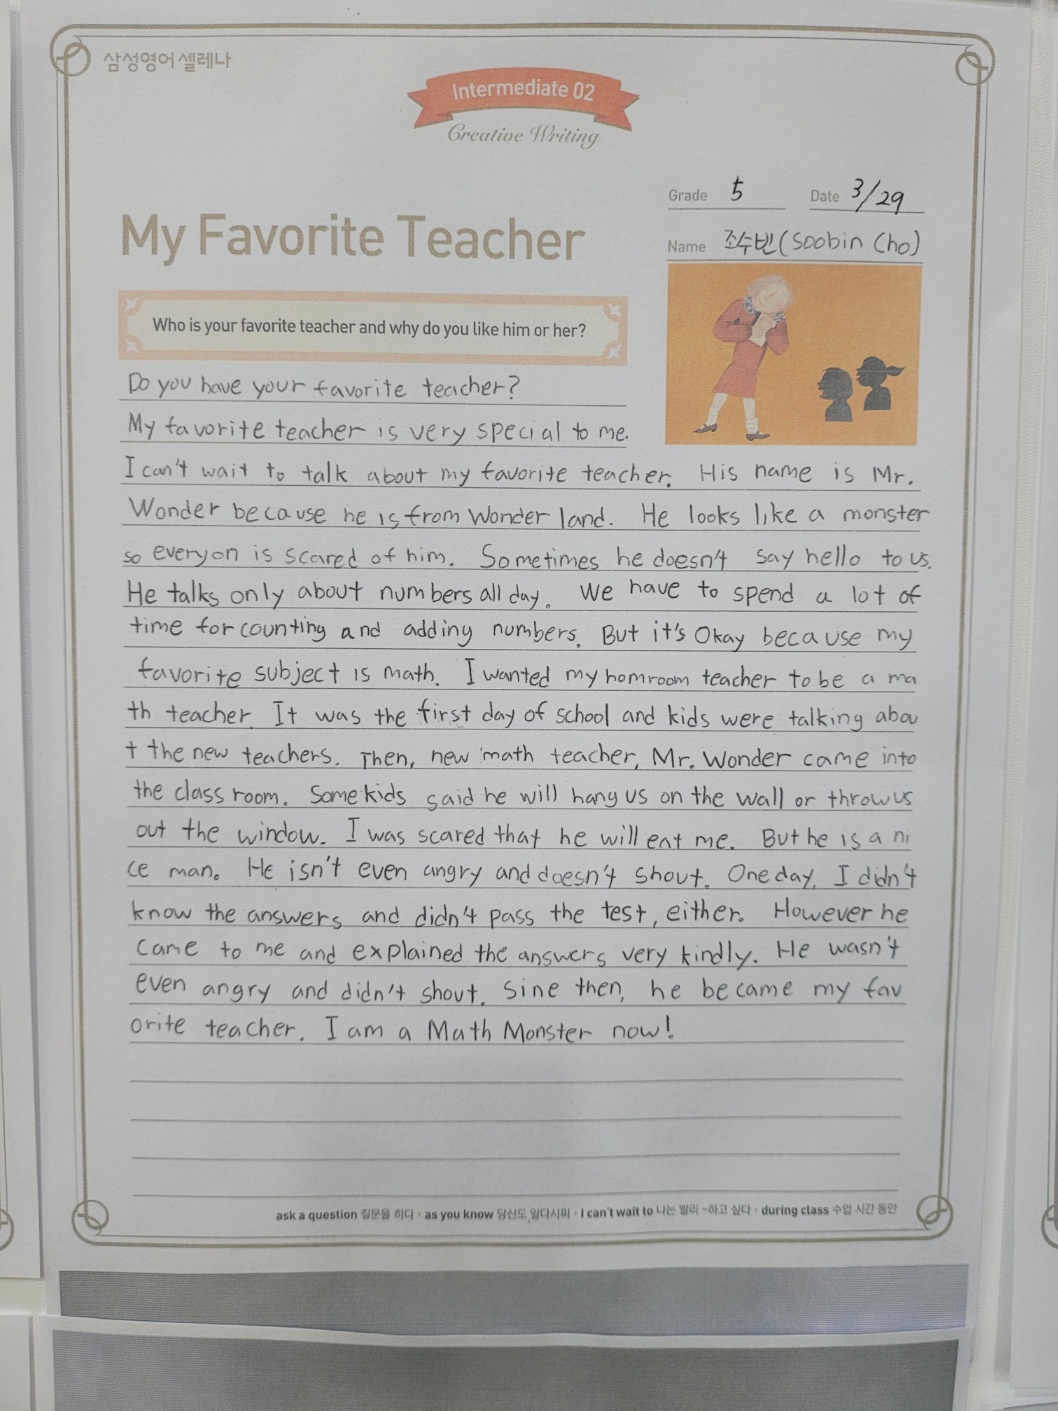 삼성영어 셀레나
Intermediate 02
Creative Writing
Grade 5 Date 3/29
My Favorite Teacher
Name 조수빈(Soobin Cho)
Who is your favorite teacher and why do you like him or her?
Do you have your favorite teacher?
My favorite teacher is very special to me.
I can't wait to talk about my favorite teacher. His name is Mr.
Wonder because he is from Wonder land. He looks like a monster
so everyon is scared of him. Sometimes he doesn't say hello to us.
He talks only about numbers all day. We have to spend a lot of
time for counting and adding numbers. But it's Okay because my
favorite subject is math. I wanted my homroom teacher to be a ma
th teacher. It was the first day of school and kids were talking abou
t the new teachers. Then, new math teacher, Mr. Wonder came into
the class room. Some kids said he will hang us on the wall or throw us
out the window. I was scared that he will eat me. But he is a ni
ce man. He isn't even angry and doesn't shout. One day, I didn't
know the answers and didn't pass the test, either. However he
came to me and explained the answers very kindly. He wasn't
even angry and didn't shout. Sine then, he became my fav
orite teacher. I am a Math Monster now!
ask a question 질문을 하다 · as you know 당신도 알다시피 · I can't wait to 나는 빨리 ~하고 싶다 · during class 수업 시간 동안